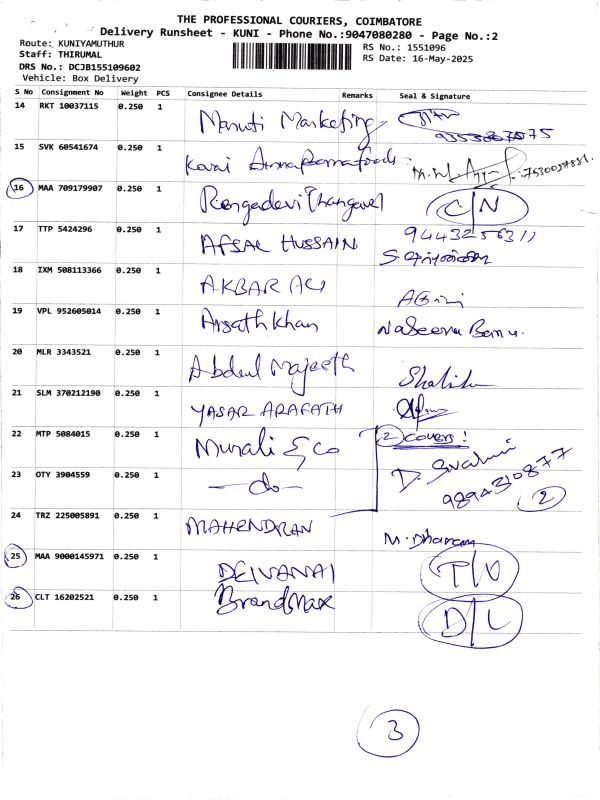 THE PROFESSIONAL COURIERS, COIMBATORE
Delivery Runsheet - KUNI - Phone No.:9047080280 - Page No.:2
Route: KUNIYAMUTHUR
Staff: THIRUMAL
RS No.: 1551096
DRS No.: DCJB155109602
RS Date: 16-May-2025
Vehicle: Box Delivery
S No Consignment No Weight PCS Consignee Details Remarks Seal & Signature
14 RKT 10037115 0.250 1 Maruti Marketing
15 SVK 60541674 0.250 1 Kovai
16 MAA 709179907 0.250 1 Rengadevi Thangavel C/N
17 TTP 5424296 0.250 1 AFSAL HUSSAIN 9443256311
18 IXM 508113366 0.250 1 AKBAR ALI
19 VPL 952605014 0.250 1 Arsath Khan Naseema Banu.
20 MLR 3343521 0.250 1 Abdul Majeeth
21 SLM 370212190 0.250 1 YASAR ARAFATH
22 MTP 5084015 0.250 1 Murali & Co 2 covers!
23 OTY 3904559 0.250 1 —do— 9894310877
2
24 TRZ 225005891 0.250 1 MAHENDRAN
25 MAA 9000145971 0.250 1 DEIVANAI
26 CLT 16202521 0.250 1 BrandMax D/L
3